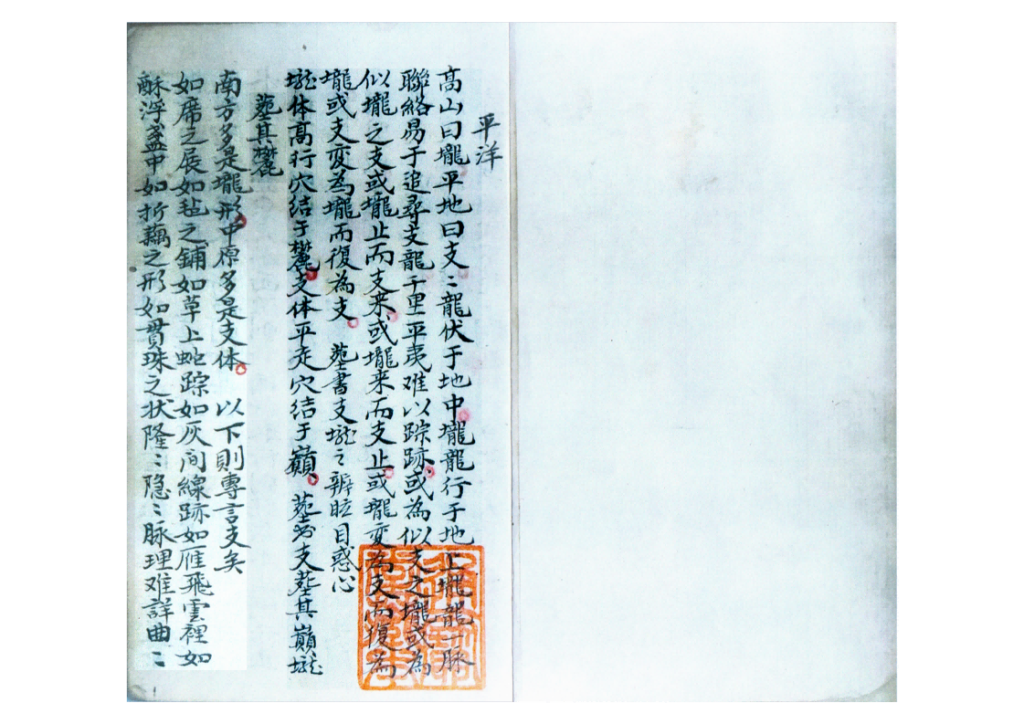 平洋
高山曰壠平地曰支〻龍伏于地中壠龍行于地上壠龍一脉
聯絡易于追尋支龍千里平夷难以踪跡或為似支之壠或為
似壠之支或壠止而支来或壠来而支止或壠变為支而復為
壠或支变為壠而復為支 塟書支壠之辨眩目惑心
壠体高行穴结于麓支体平走穴结于巔 塟书支塟其巔壠
塟其麓
南方多是壠形中原多是支体 以下則專言支矣
如席之展如毡之鋪如草上蛇踪如灰间線跡如雁飛雲裡如
酥浮盏中如折藕之形如貫珠之状隆〻隐〻脉理难詳曲〻